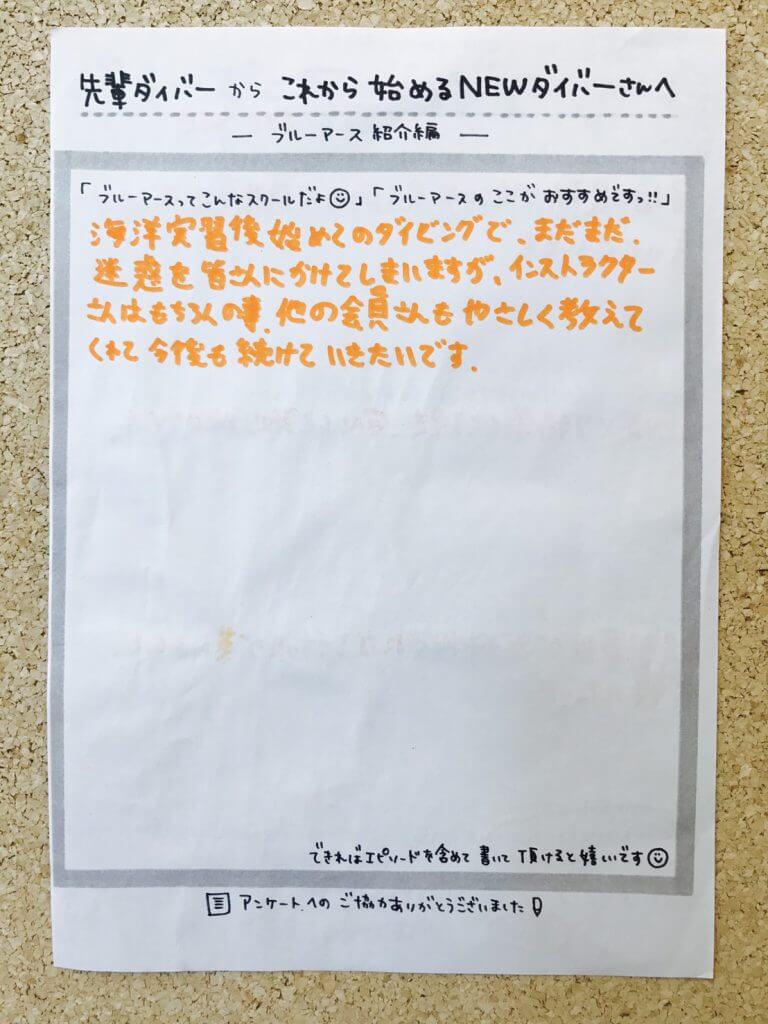 先輩ダイバーから これから 始めるNEWダイバーさんへ
― ブルーアース 紹介編 ―
「ブルーアースってこんなスクールだよ☺」「ブルーアースの ここが おすすめですっ!!」
海洋実習後始めてのダイビングで、まだまだ、
迷惑を皆さんにかけてしまいますが、インストラクター
さんはもちろんの事、他の会員さんも やさしく教えて
くれて 今後も 続けて いきたいです.
できればエピソードを含めて 書いて 頂けると嬉しいです☺
アンケートへの ご協力ありがとうございました